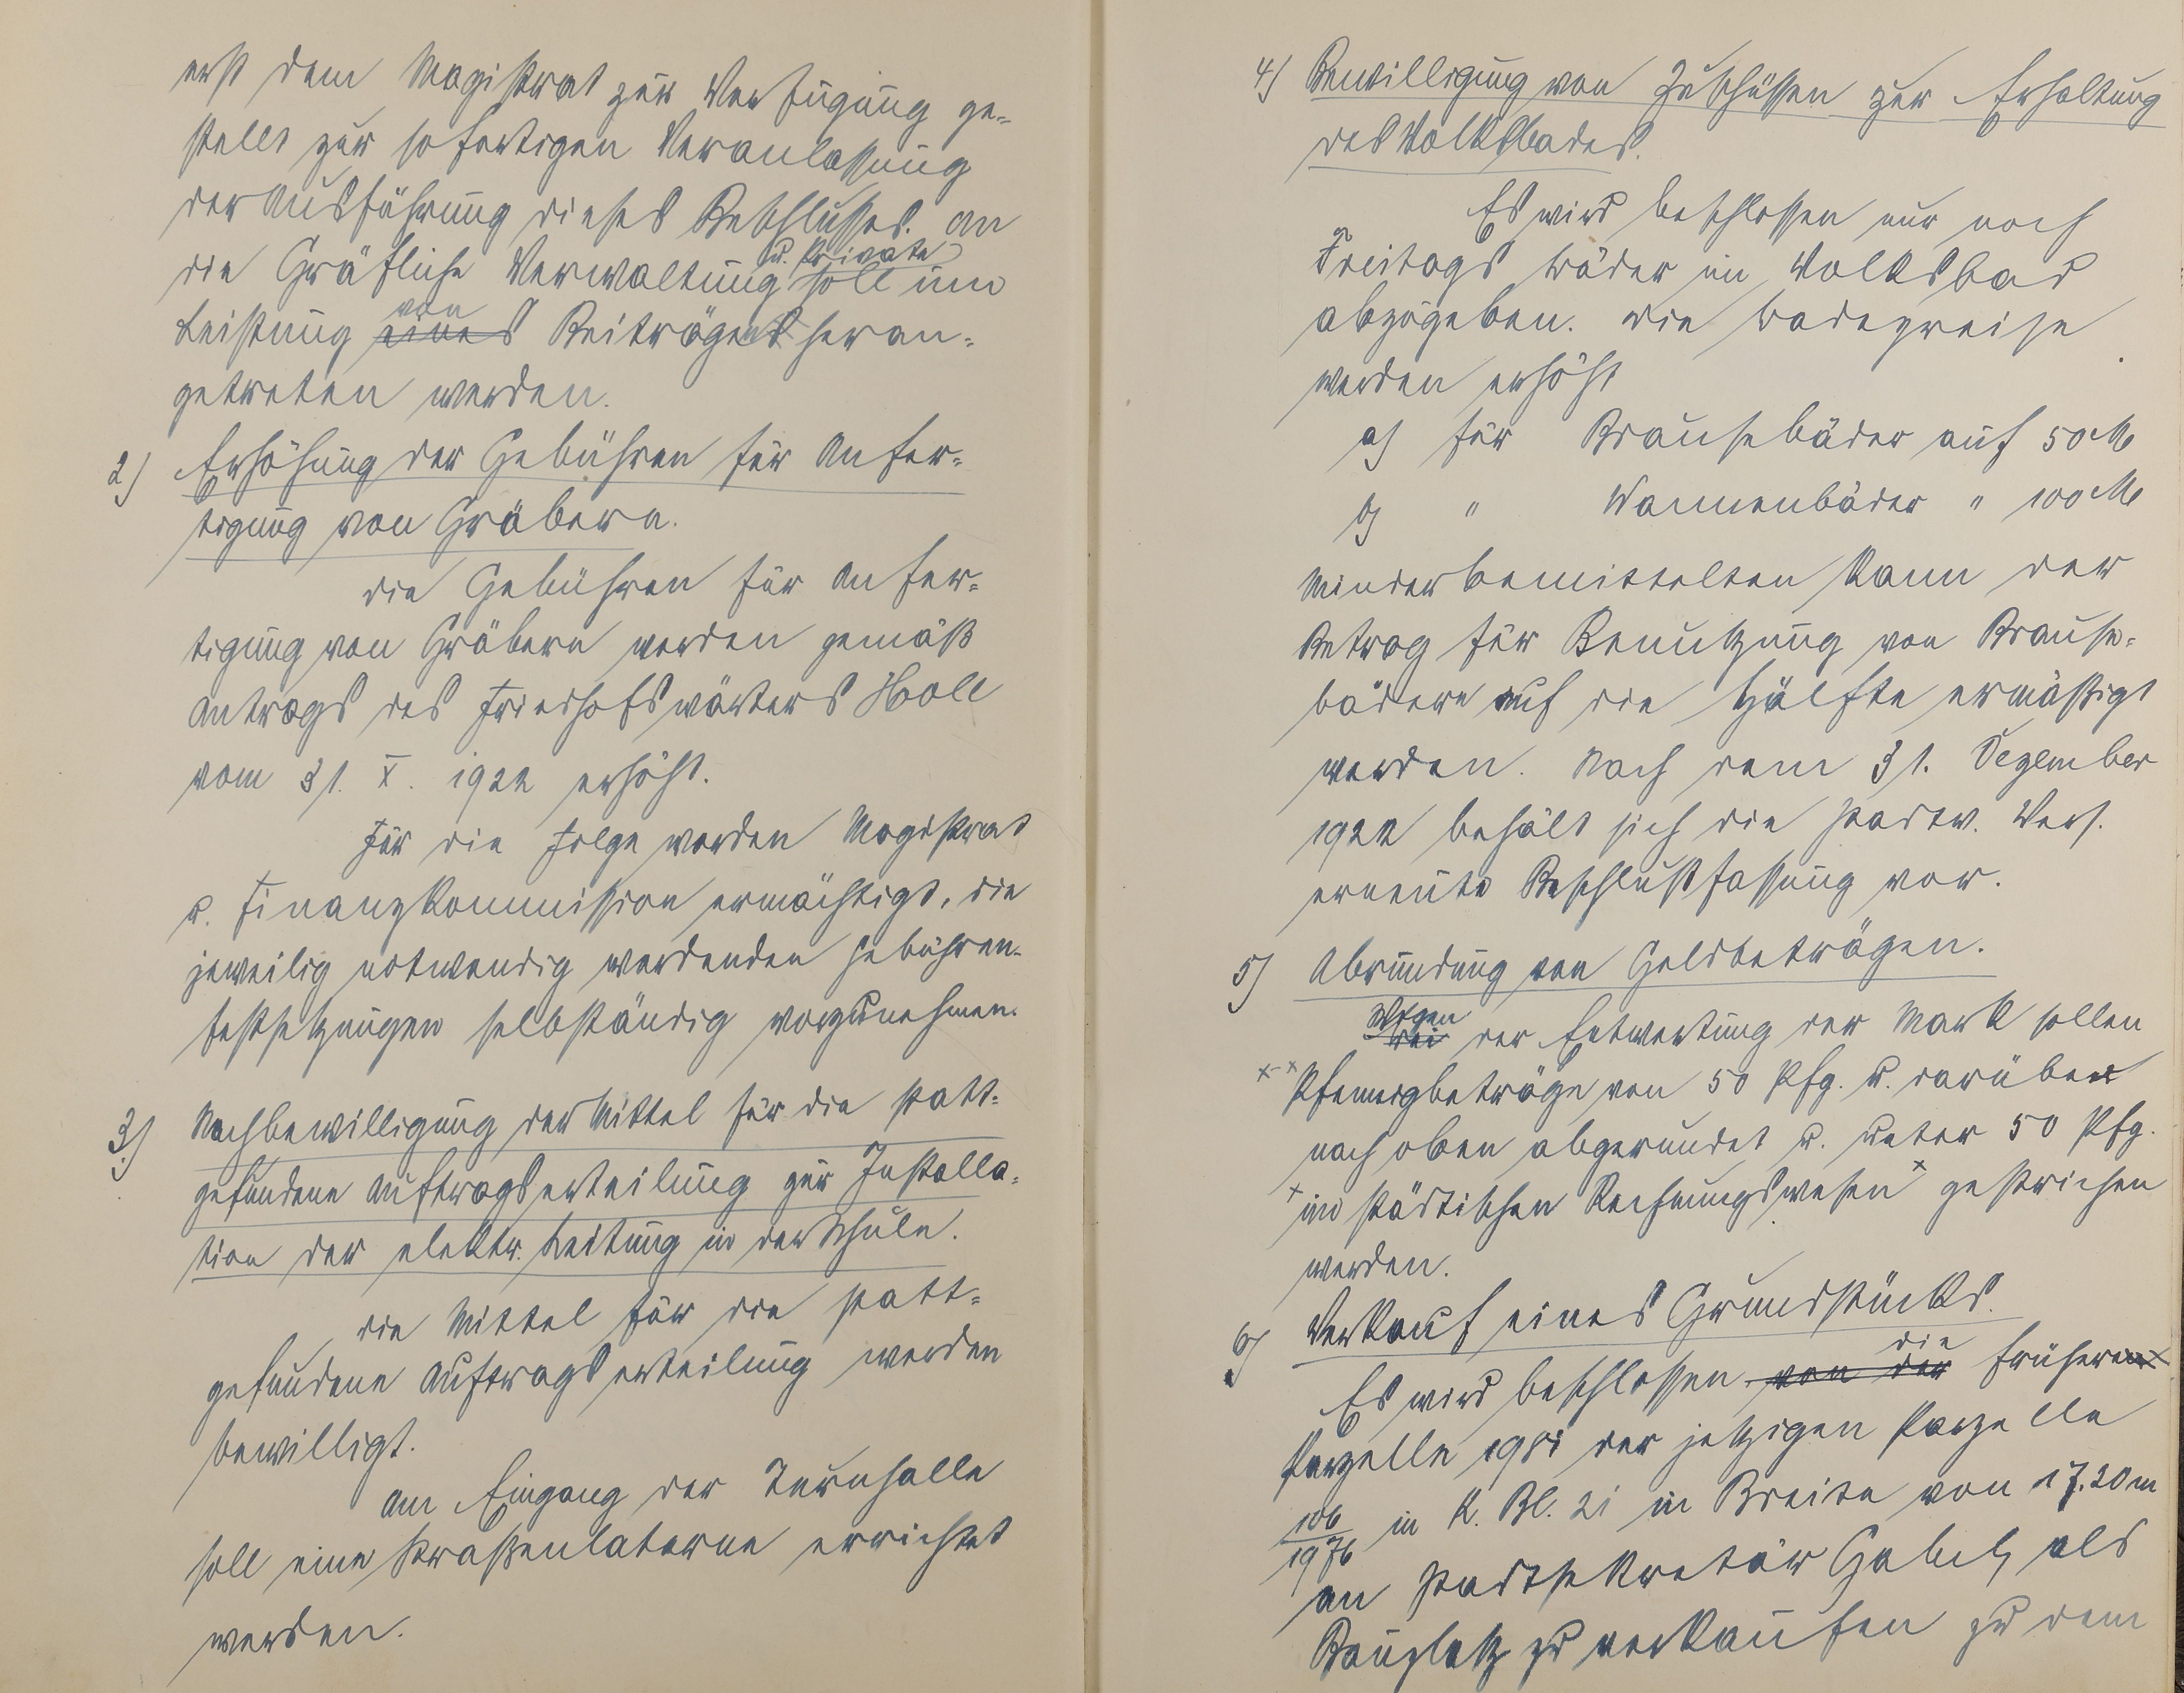 erst dem Magistrat zur Verfügung ge-
stellt zur sofortigen Veranlassung
der Ausführung dieses Beschlusses. An
die Gräfliche Verwaltung u. Private soll um
Leistung eines von Beiträgen heran-
getreten werden.
2) Erhöhung der Gebühren für Anfer-
tigung von Gräbern.
Die Gebühren für Anfer-
tigung von Gräbern werden gemäß
Antrags des Friedhofswärters Holl
vom 31. X. 1922 erhöht.
Für die Folge werden Magistrat
u. Finanzkommission ermächtigt, die
jeweilig notwendig werdenden Gebühren-
festsetzungen selbständig vorzunehmen.
3) Nachbewilligung der Mittel für die statt-
gefundene Auftragserteilung zur Installa-
tion der elektr. Leitung in der Schule.
Die Mittel für die statt-
gefundene Auftragserteilung werden
bewilligt.
Am Eingang der Turnhalle
soll eine Straßenlaterne errichtet
werden.
4) Bewilligung von Zuschüssen zur Erhaltung
des Volksbades.
Es wird beschlossen nur noch
Freitags Bäder im Volksbad
abzugeben. Die Badepreise
werden erhöht
a) für Brausebäder auf 50 M
b) " Wannenbäder " 100 M
Minderbemittelten kann der
Betrag für Benutzung von Brause-
bädern auf die Hälfte ermäßigt
werden. Nach dem 31. Dezember
1922 behält sich die Stadtv. Vers.
erneute Beschlußfassung vor.
5) Abrundung von Geldbeträgen.
Wegen bei der Entwertung der Mark sollen
x-x Pfennigbeträge von 50 Pfg. u. darüber
nach oben abgerundet u. unter 50 Pfg.
x im städtischen Rechnungswesen x gestrichen
werden.
6) Verkauf eines Grundstücks.
Es wird beschlossen von der die frühere
Parzelle 1981 der jetzigen Parzelle
106/1976 in K. Bl. 21 in Breite von 17.20 m
an Stadtsekretär als
Bauplatz zu verkaufen zu dem